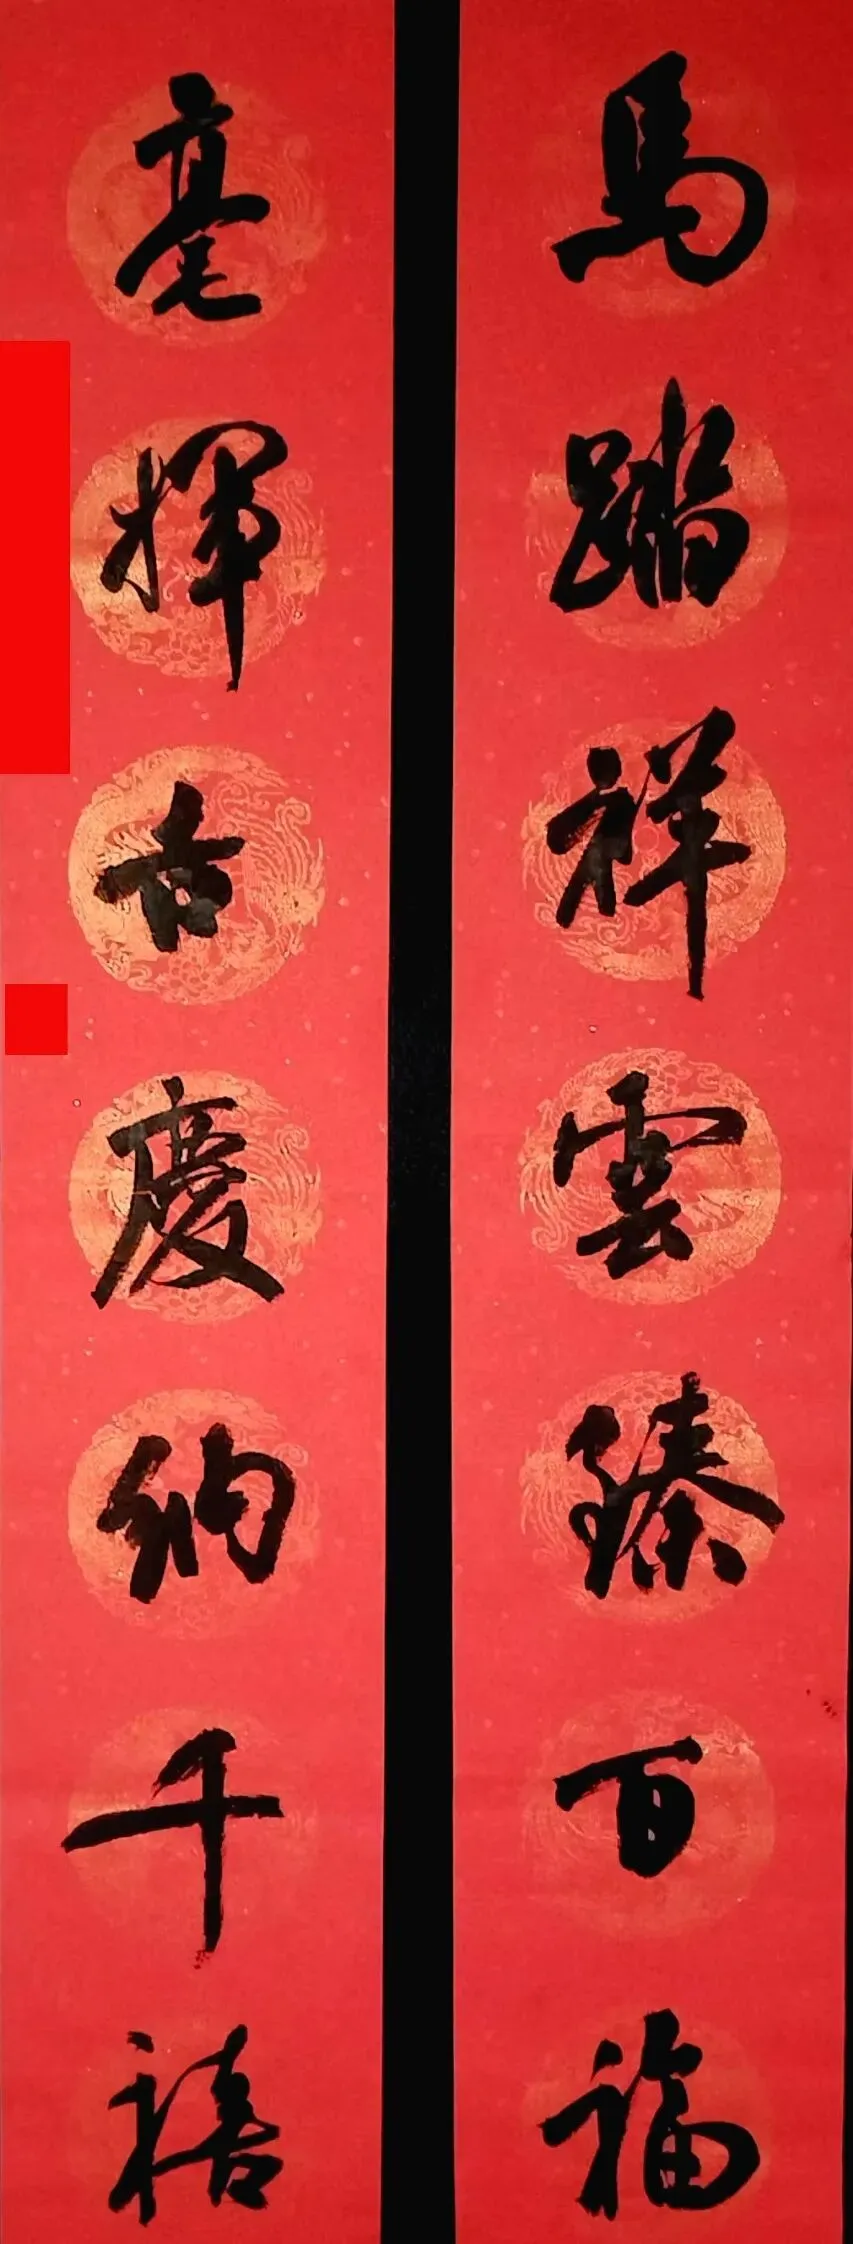 馬踏祥雲臻百福
毫揮吉慶納千禧